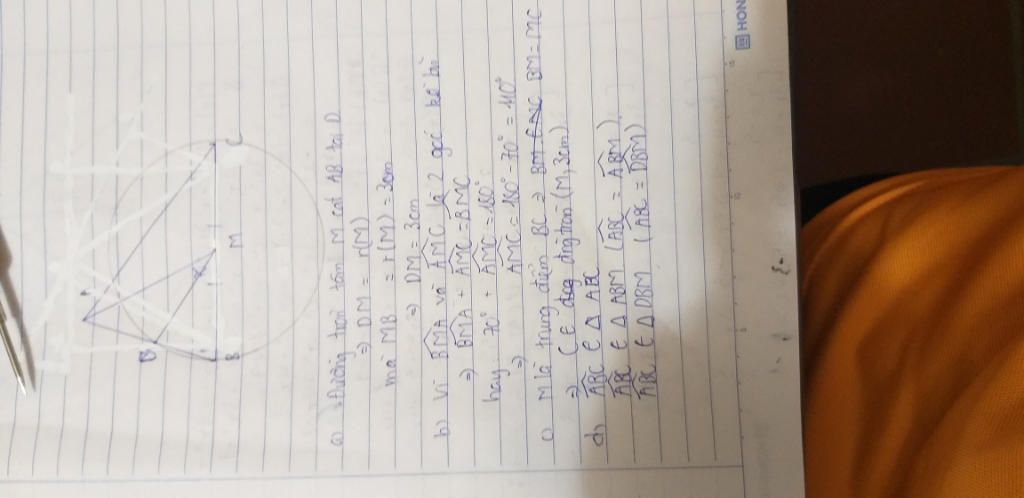 A
D
B
M
C
a) Đường tròn tâm M cắt AB tại D
=> DM = r(M)
mà MB = r(M) = 3cm
=> DM = 3cm
b) Vì BMA và AMC là 2 góc kề bù
=> BMA + AMC = BMC
hay: 70° + AMC = 180°
=> AMC = 180° - 70° = 110°
c) M là trung điểm BC => BM = MC
=> C ∈ đường tròn (M, 3cm)
d) ABC ∈ △ ABC
ABC ∈ △ ABM (ABC = ABM)
ABC ∈ △ DBM (ABC = DBM)
HON